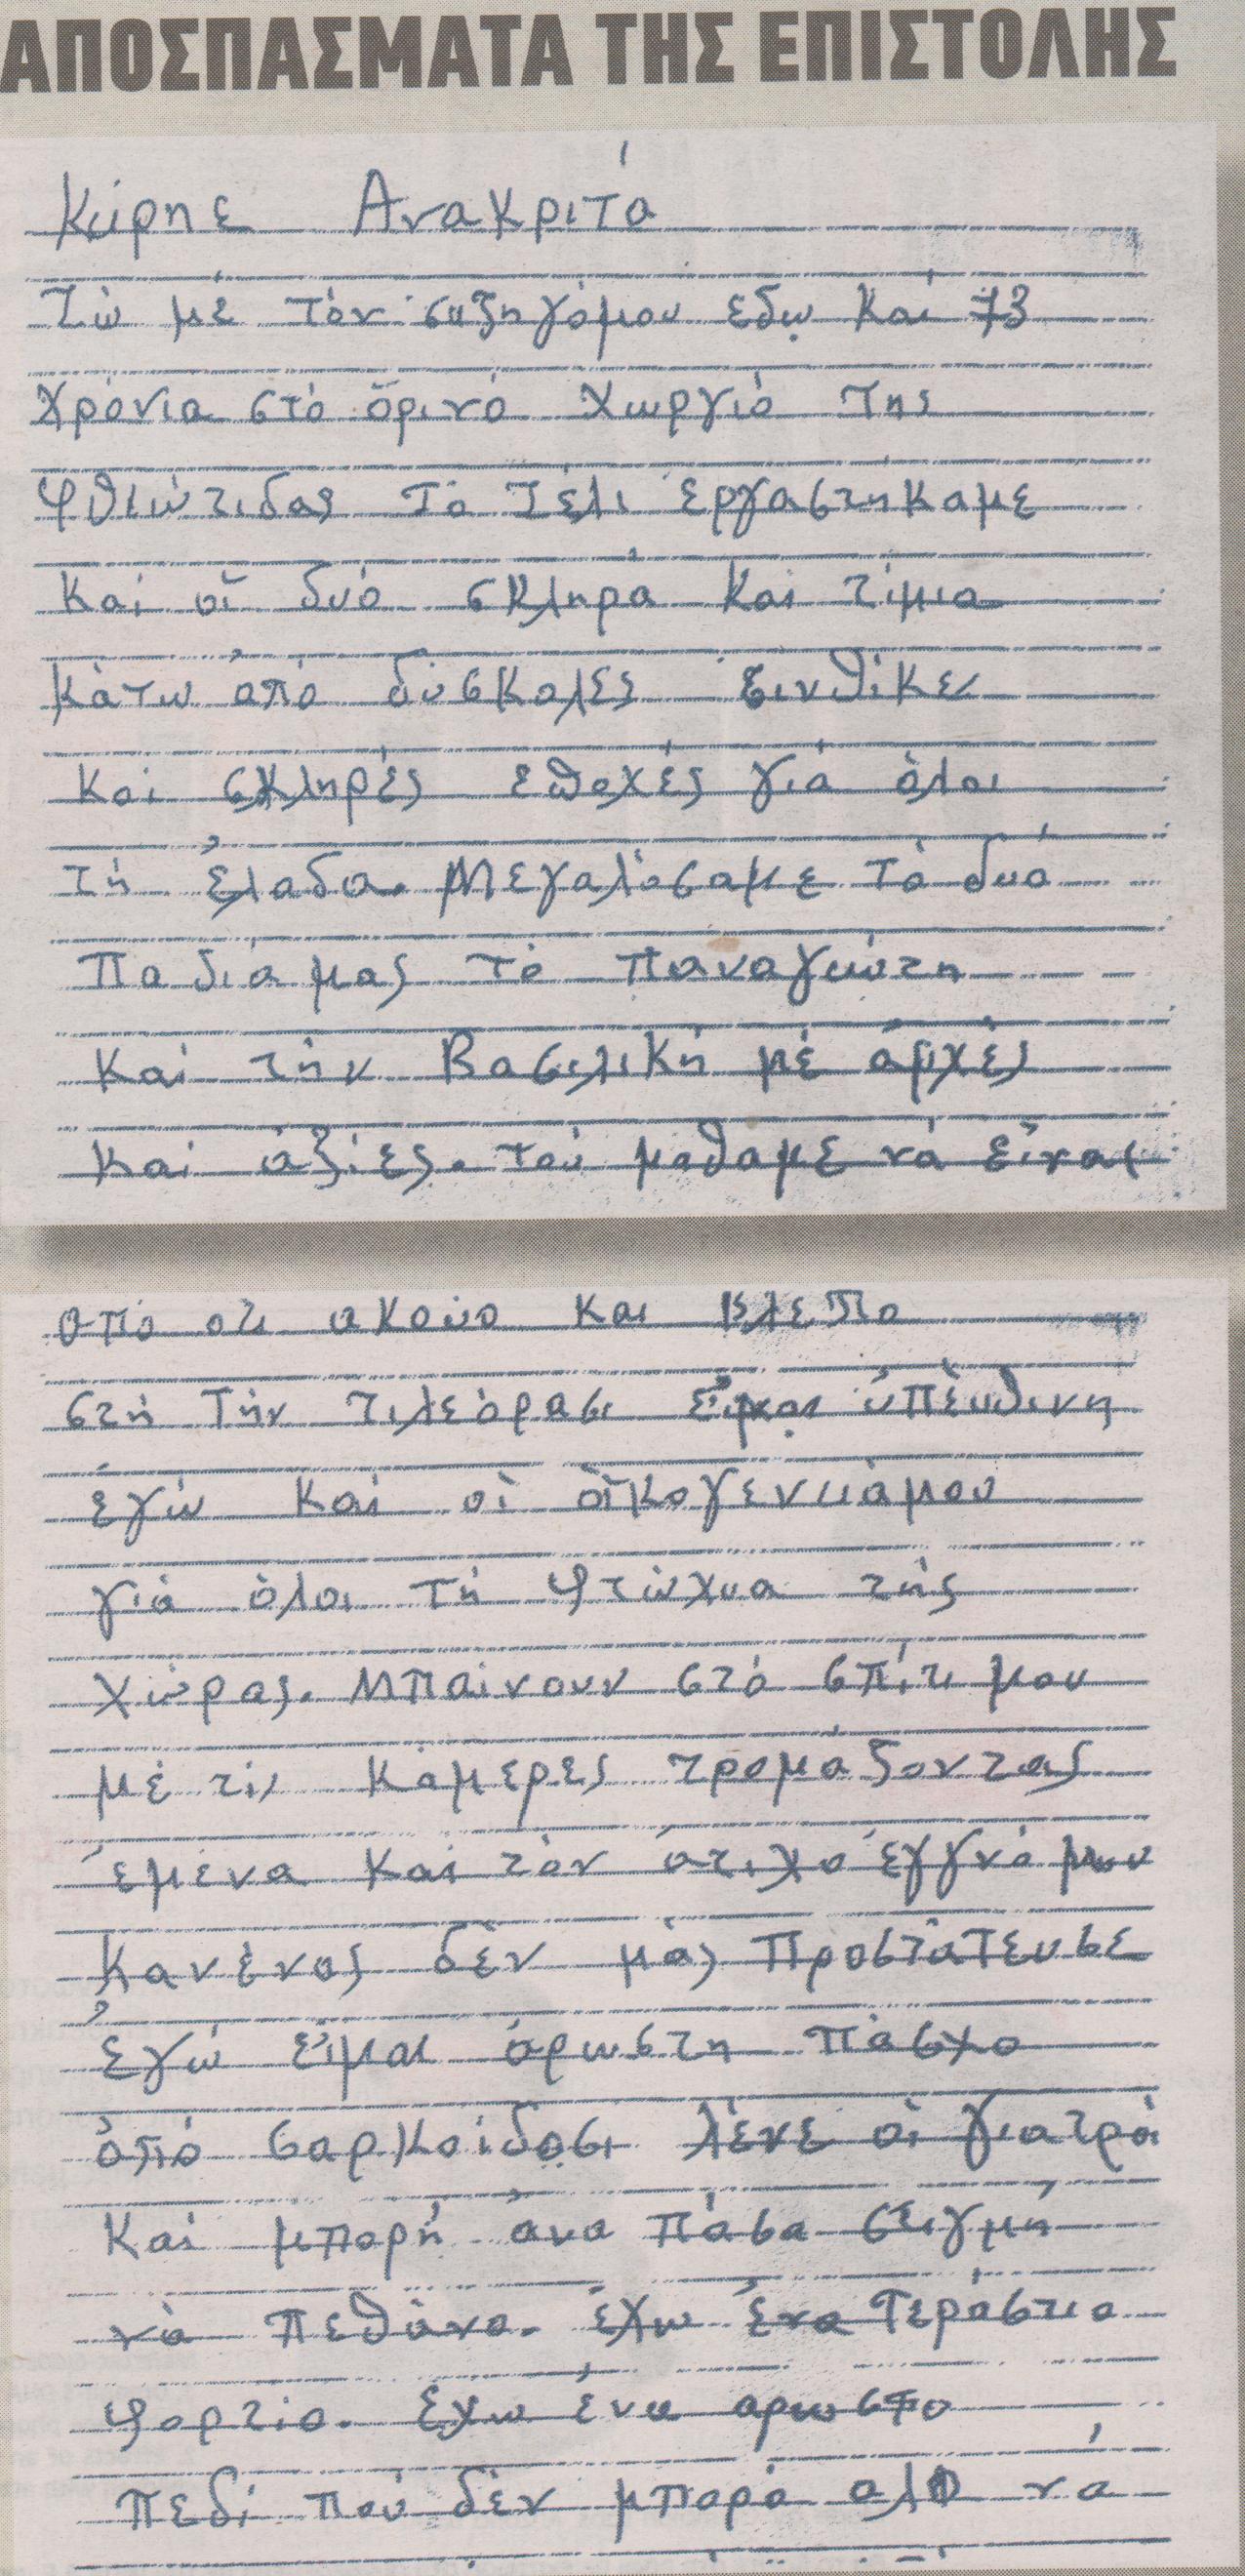 ΑΠΟΣΠΑΣΜΑΤΑ ΤΗΣ ΕΠΙΣΤΟΛΗΣ
Κύρηε Ανακριτά
Ζώ μέ τόν συζηγόμου εδω και 73
χρόνια στό όρινό χωργιό της
Φθιώτιδας Τό Ζέλι έργαστηκαμε
και οί δυό σκληρά και τίμια
κάτω από δύσκολες σινθίκες
και σκληρές εποχές γιά όλοι
τή έλαδα. Μεγαλόσαμε τά δυό
παδιά μας τό παναγιώτη
και τήν Βασιλική μέ άρχές
και άξίες. τού μαθαμε νά είναι
απο οτι ακούο και βλεπο
στή Τήν τιλεόρασι είμαι ύπέυθινη
έγώ και οί οίκογενιάμου
γιά όλοι τή φτώχια τής
χώρας. Μπαίνουν στό σπίτι μου
μέ τις κάμερες τρομάζοντας
έμένα και τόν άτιχο έγγνό μου
Κανένας δέν μάς προστάτευσε
έγώ είμαι άρωστη πάσχο
άπό σαρκοίδοσι λένε οί γιατρόι
και μπορή άνα πάσα στιγμή
νά πεθάνο. έχω ένα τεράστιο
φορτίο. έχω ένα αρωστο
πεδί πού δέν μπορά αλο νά